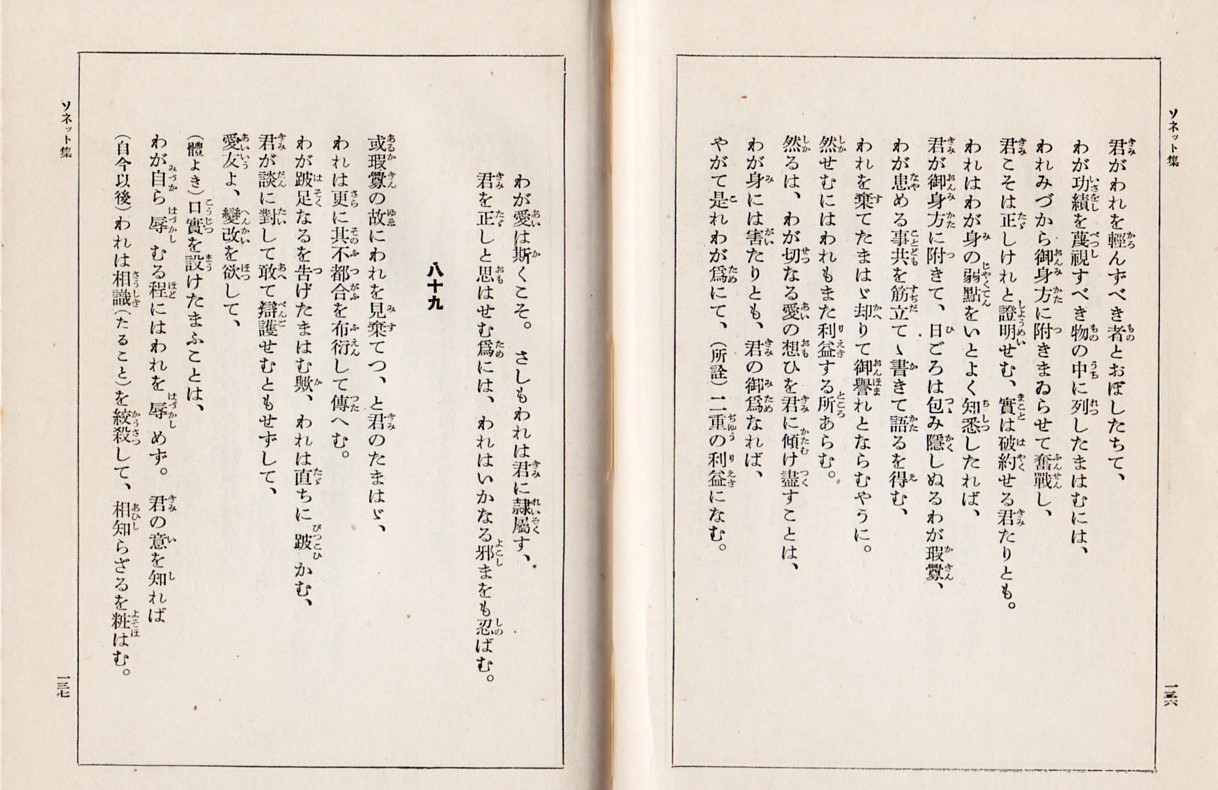 ソネット集
一三六
君がわれを輕んずべき者とおぼしたちて、
わが功績を蔑視すべき物の中に列したまはむには、
われみづから御身方に附きまゐらせて奮戰し、
君こそは正しけれと證明せむ、實は破約せる君たりとも。
われはわが身の弱點をいとよく知悉したれば、
君が御身方に附きて、日ごろは包み隱しぬるわが瑕釁、
わが患める事共を筋立てゝ書きて語るを得む、
われを棄てたまはゞ却りて御譽れとならむやうに。
然せむにはわれもまた利益する所あらむ。
然るは、わが切なる愛の想ひを君に傾け盡すことは、
わが身には害たりとも、君の御爲なれば、
やがて是れわが爲にて、（所詮）二重の利益になむ。
わが愛は斯くこそ。さしもわれは君に隷屬す、
君を正しと思はせむ爲には、われはいかなる邪まをも忍ばむ。
八十九
或瑕釁の故にわれを見棄てつ、と君のたまはゞ、
われは更に其不都合を布衍して傳へむ。
わが跛足なるを告げたまはむ歟、われは直ちに跛かむ、
君が談に對して敢て辯護せむともせずして、
愛友よ、變改を欲して、
（體よき）口實を設けたまふことは、
わが自ら辱むる程にはわれを辱めず。君の意を知れば
（自今以後）われは相識（たること）を絞殺して、相知らざるを粧はむ。
ソネット集
一三七